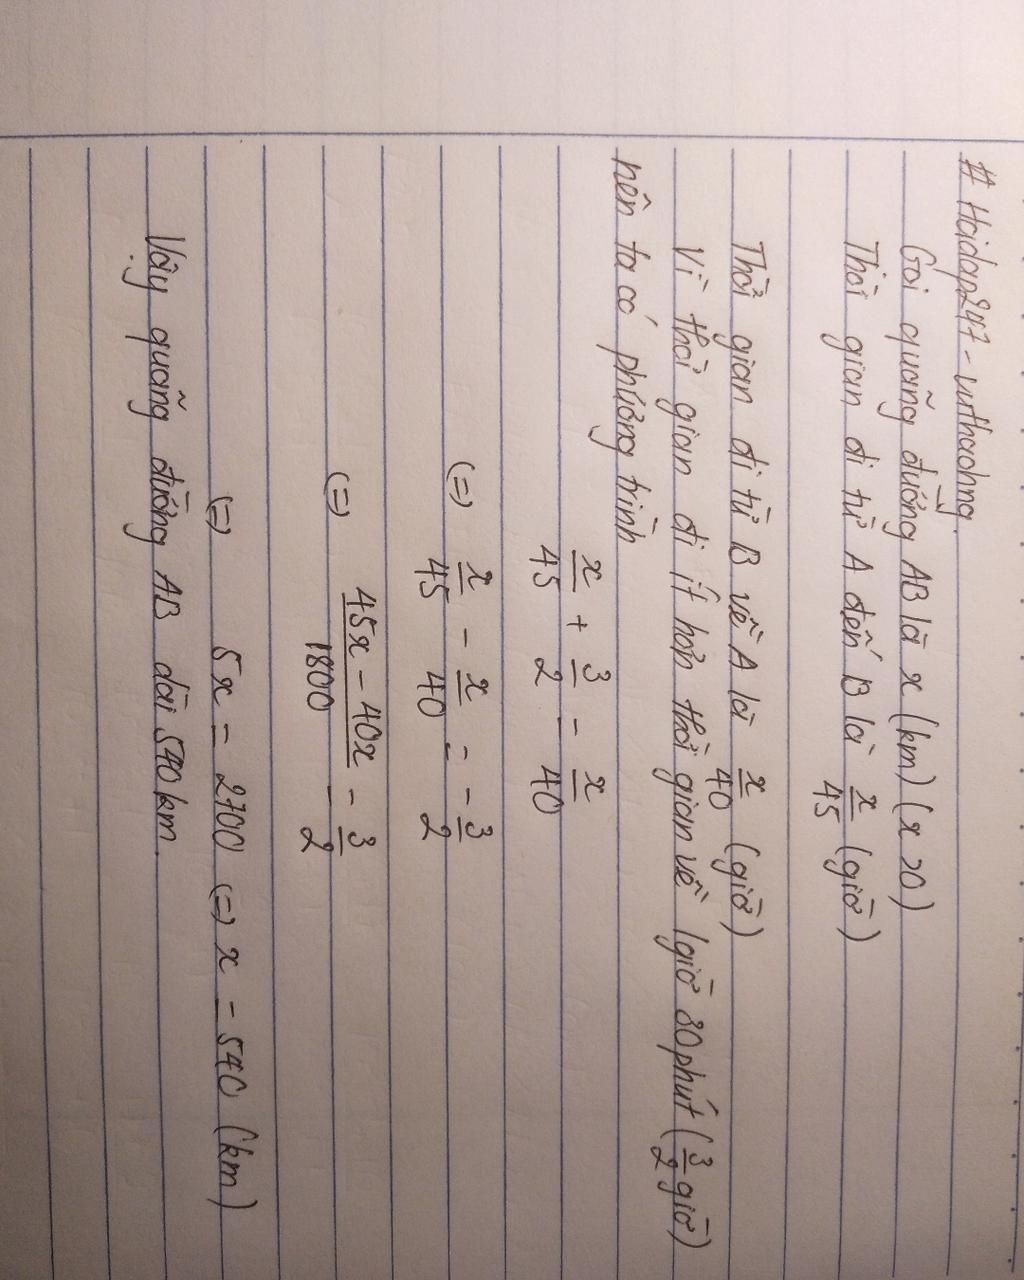 # Hoidap247 - vuthaohng.
Gọi quãng đường AB là x (km) (x >0)
Thời gian đi từ A đến B là x/45 (giờ)
Thời gian đi từ B về A là x/40 (giờ)
Vì thời gian đi ít hơn thời gian về 1giờ 30phút (3/2 giờ)
nên ta có phương trình
x/45 + 3/2 = x/40
(=) x/45 - x/40 = - 3/2
(=) 45x - 40x / 1800 = 3/2
(=) 5x = 2700 (=) x = 540 (km)
Vậy quãng đường AB dài 540 km.